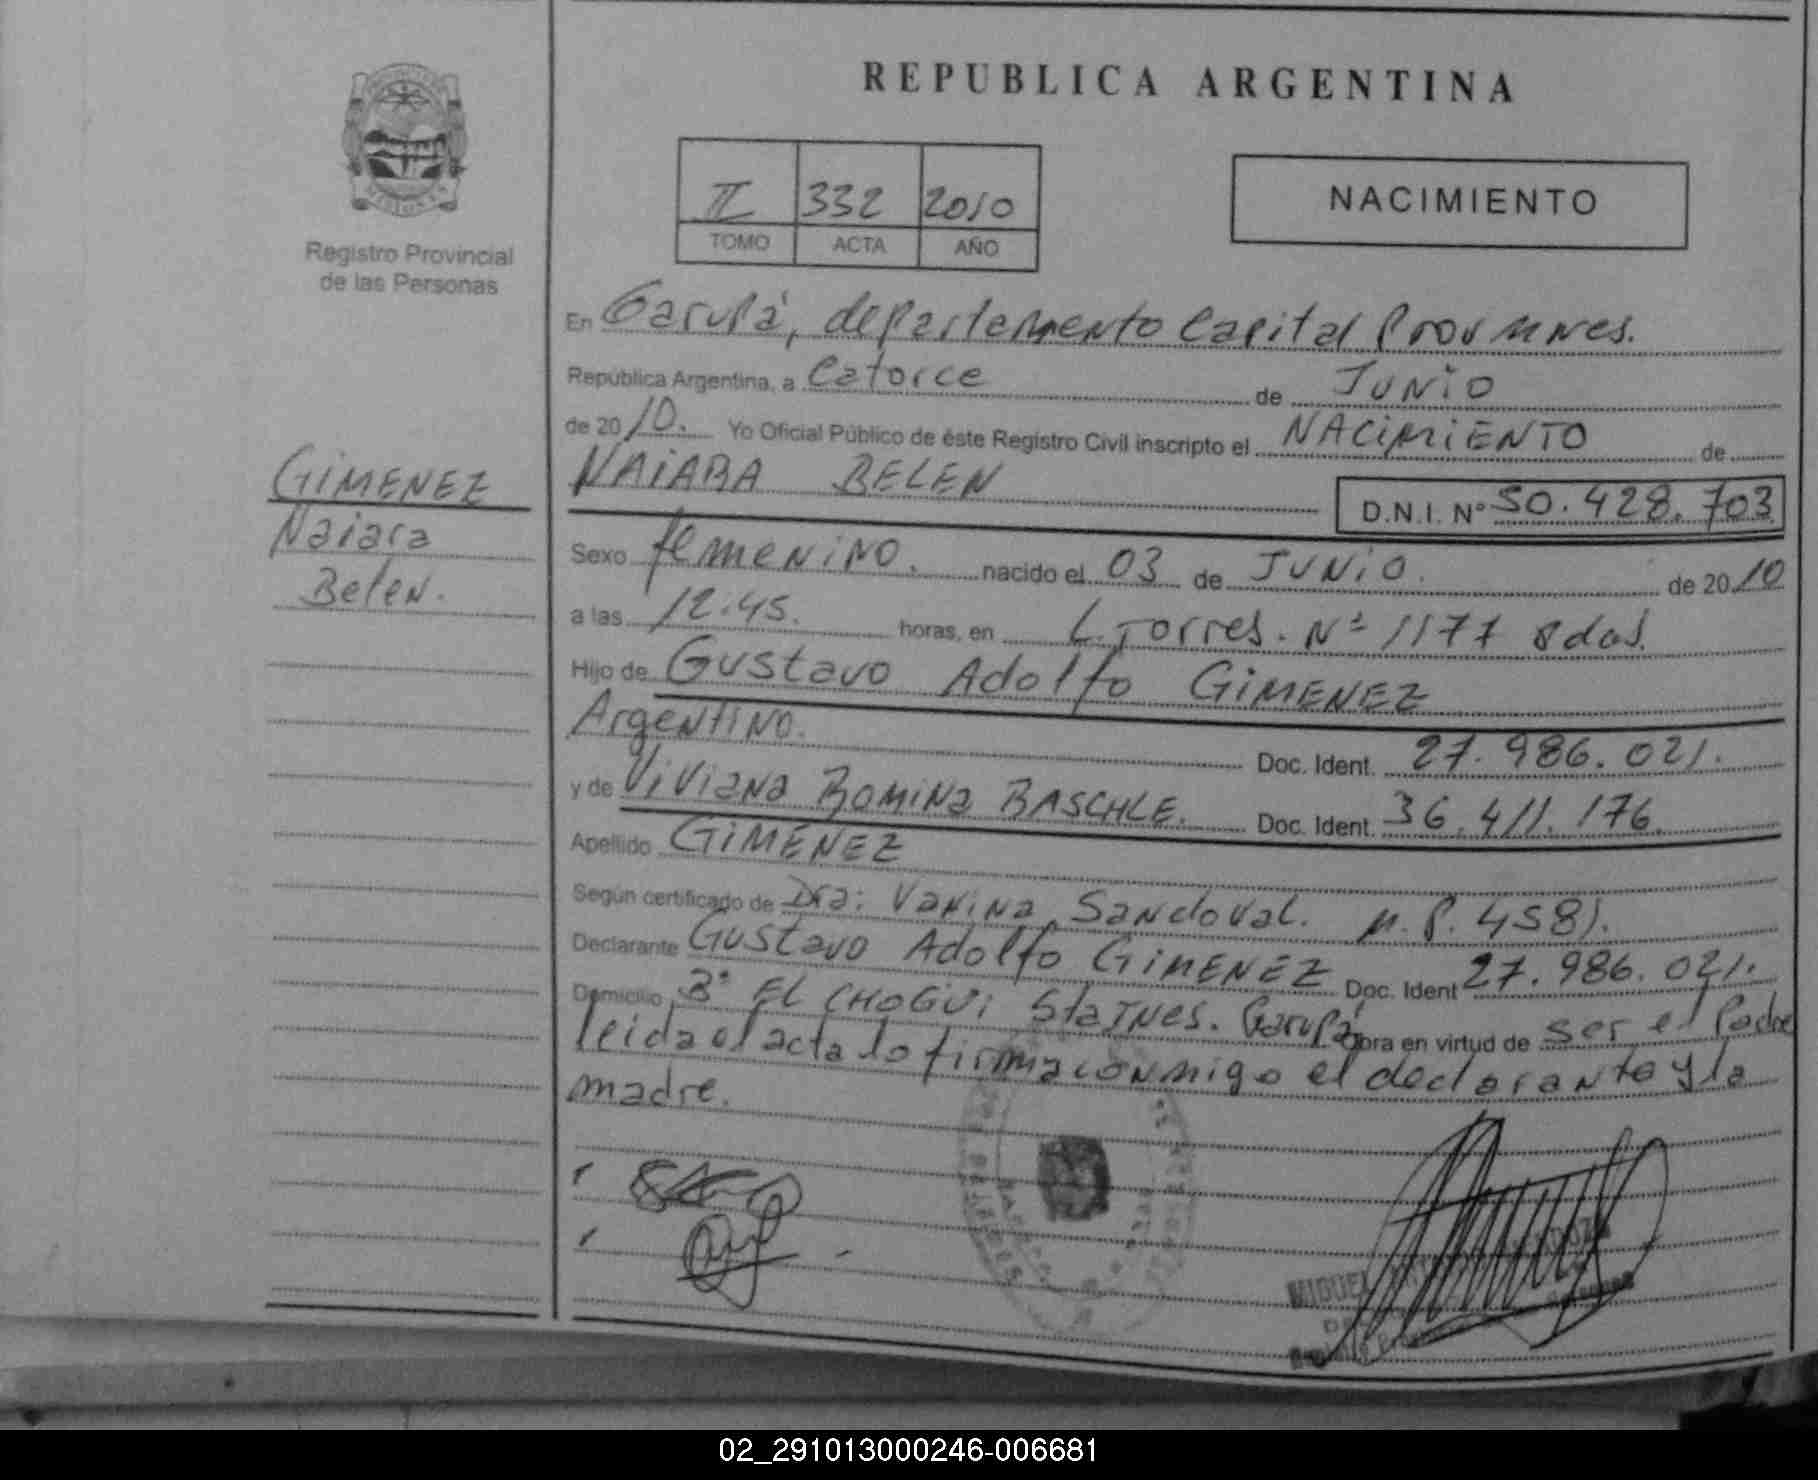 REPUBLICA ARGENTINA
II 332 2010
TOMO ACTA AÑO
NACIMIENTO
Registro Provincial
de las Personas
GIMENEZ
Naiara
Belen.
En Garupá, departamento Capital Prov Mnes.
República Argentina, a Catorce de JUNIO
de 2010. Yo Oficial Público de éste Registro Civil inscripto el NACIMIENTO de
NAIARA BELEN D.N.I. Nº 50.428.703
Sexo femenino. nacido el 03 de JUNIO. de 2010
a las 12:45. horas, en L. Torres. Nº 1177 Pdas.
Hijo de Gustavo Adolfo GIMENEZ
Argentino. Doc. Ident. 27.986.021.
y de Viviana Romina BASCHLE. Doc. Ident. 36.411.176.
Apellido GIMENEZ
Según certificado de Dra: Vanina Sandoval. M.P. 4581.
Declarante Gustavo Adolfo GIMENEZ Doc. Ident 27.986.021.
Domicilio Bº EL CHOGUI Garupá Obra en virtud de ser el Padre
leida el acta lo firma conmigo el declarante y la
madre.
MIGUEL
02_291013000246-006681